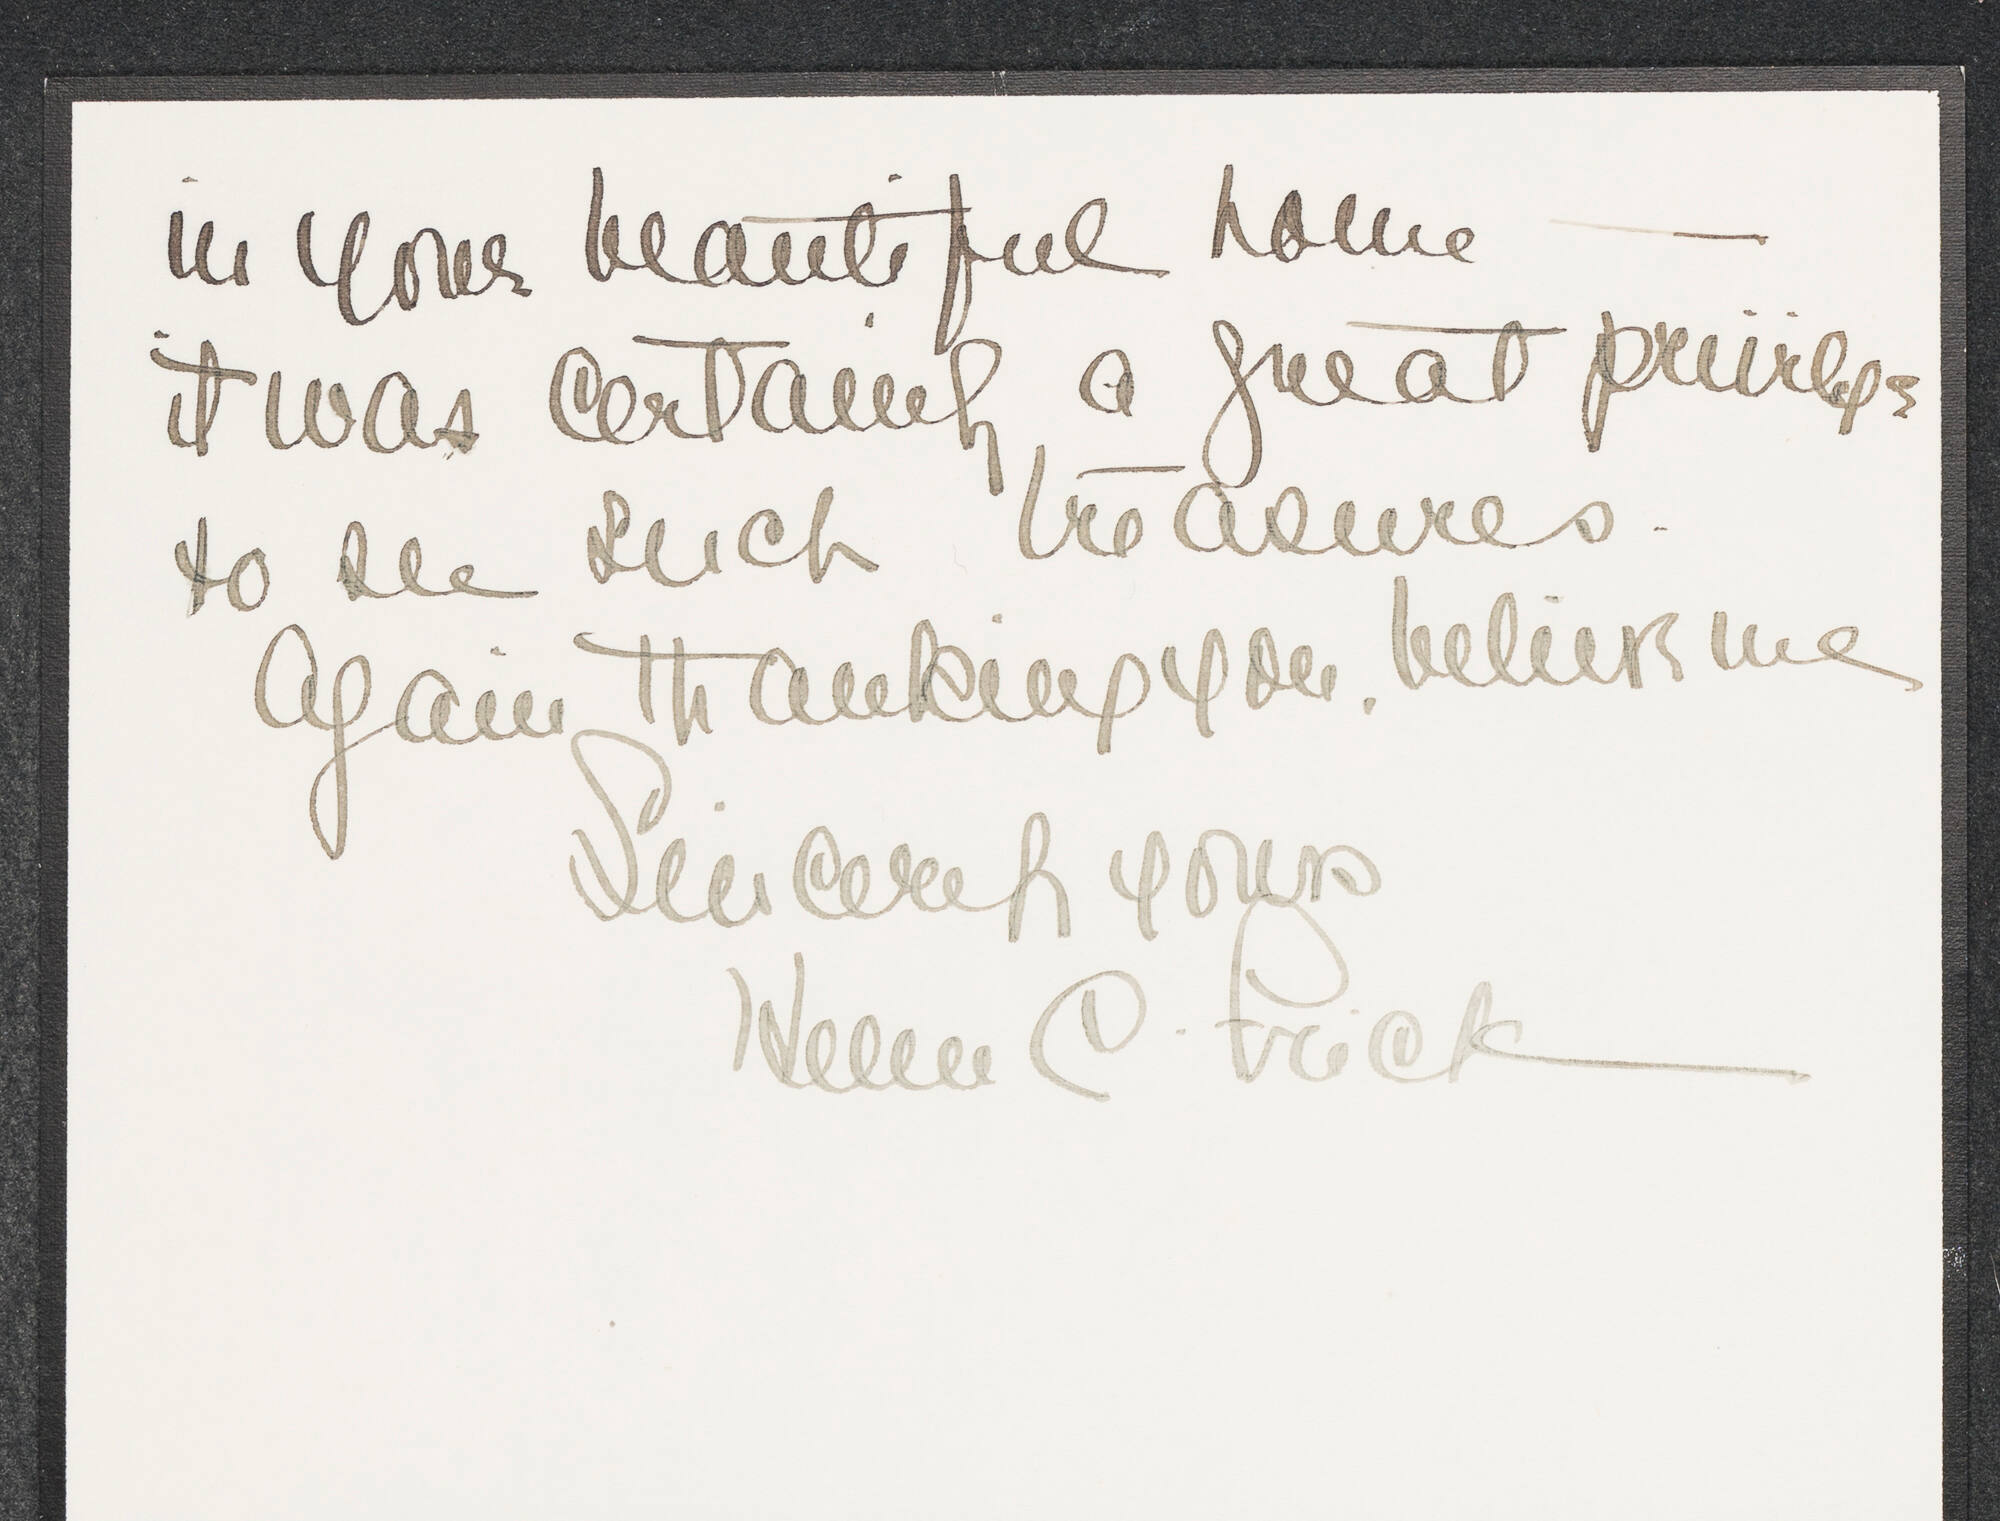 in your beautiful home —
it was certainly a great privilege
to see such treasures.
Again thanking you, believe me
Sincerely yours
Helen C. Frick